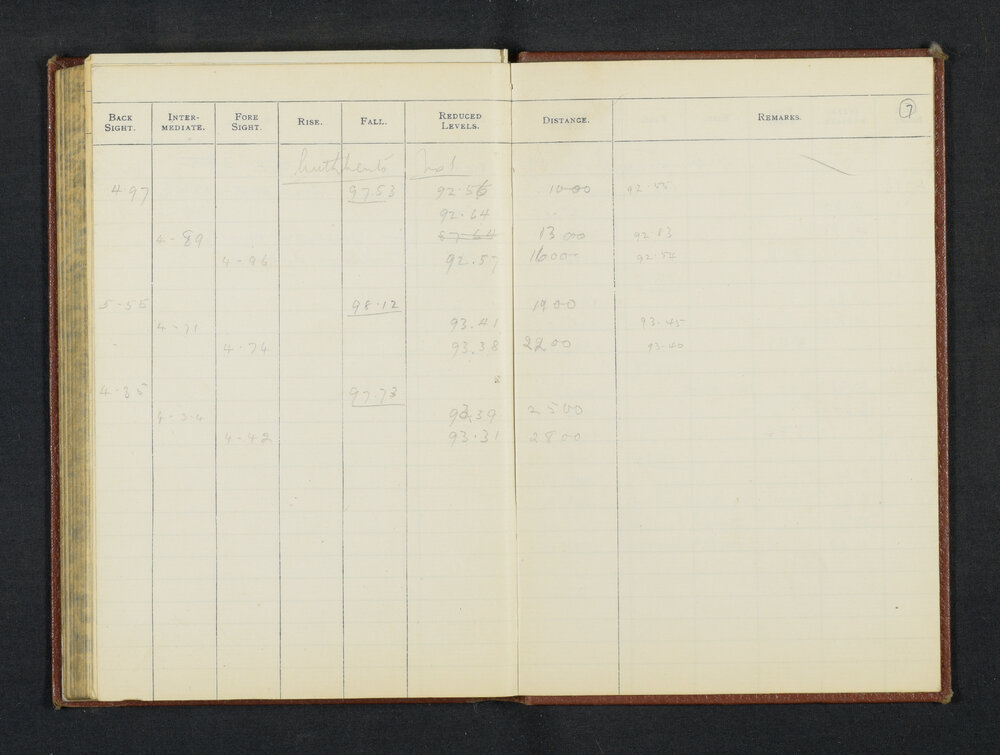 Back Sight. Inter-mediate. Fore Sight. Rise. Fall. Reduced Levels. Distance. Remarks. 7
No 1
4.97 97.53 92.56 1000 92.55
92.64
4.89 87.64 1300 92.83
4.96 92.57 1600 92.54
5.55 98.12 1900
4.71 93.41 93.45
4.74 93.38 2200 93.40
4.35 97.73
4.34 93.39 2500
4.42 93.31 2800